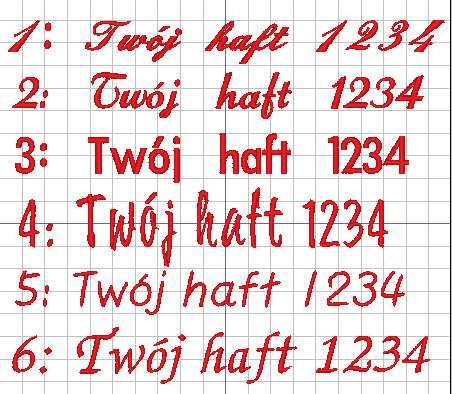 1: Twój haft 1234
2: Twój haft 1234
3: Twój haft 1234
4: Twój haft 1234
5: Twój haft 1234
6: Twój haft 1234